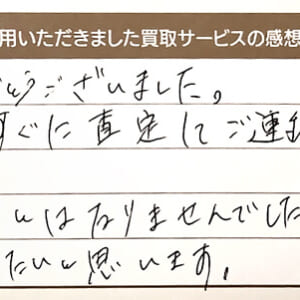 用いただきました買取サービスの感想
とうございました。
すぐに査定してご連絡
にはなりませんでした
たいと思います。